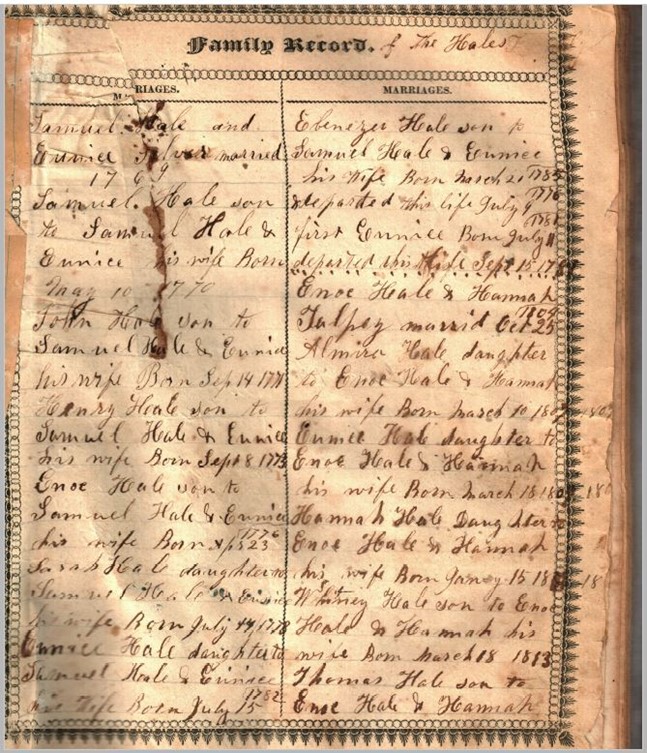 Family Record. of The Hales
MARRIAGES.
Samuel Hale and
Eunice Silver married
1769
Samuel Hale son
to Samuel Hale &
Eunice his wife Born
May 10 1770
John Hale son to
Samuel Hale & Eunice
his wife Born Sep 14 177
Henry Hale son to
Samuel Hale & Eunice
his wife Born Sept 8 1773
Enoc Hale son to
Samuel Hale & Eunice
1776
his wife Born 23
Sarah Hale daughter to
Samuel Hale & Eunice
his wife Born July 14 1778
Eunice Hale daughter to
Samuel Hale & Eunice
1782
his Wife Born July 15
MARRIAGES.
Ebenezer Hale son to
Samuel Hale & Eunice
his Wife Born March 21
1776
departed this life July 9
1781
first Eunice Born July 11
departed this life Sept 15 17
Enoc Hale & Hannah
Talpey marrid Oct 25
Almira Hale daughter
to Enoc Hale & Hannah
his wife Born March 10 180
Eunice Hale daughter to
Enoc Hale & Hannah
his wife Born March 18 180
Hannah Hale Daughter to
Enoc Hale & Hannah
his wife Born 15 18
Whitney Hale son to Enoc
Hale & Hannah his
wife Born March 18 1813
Thomas Hale son to
Enoc Hale & Hannah